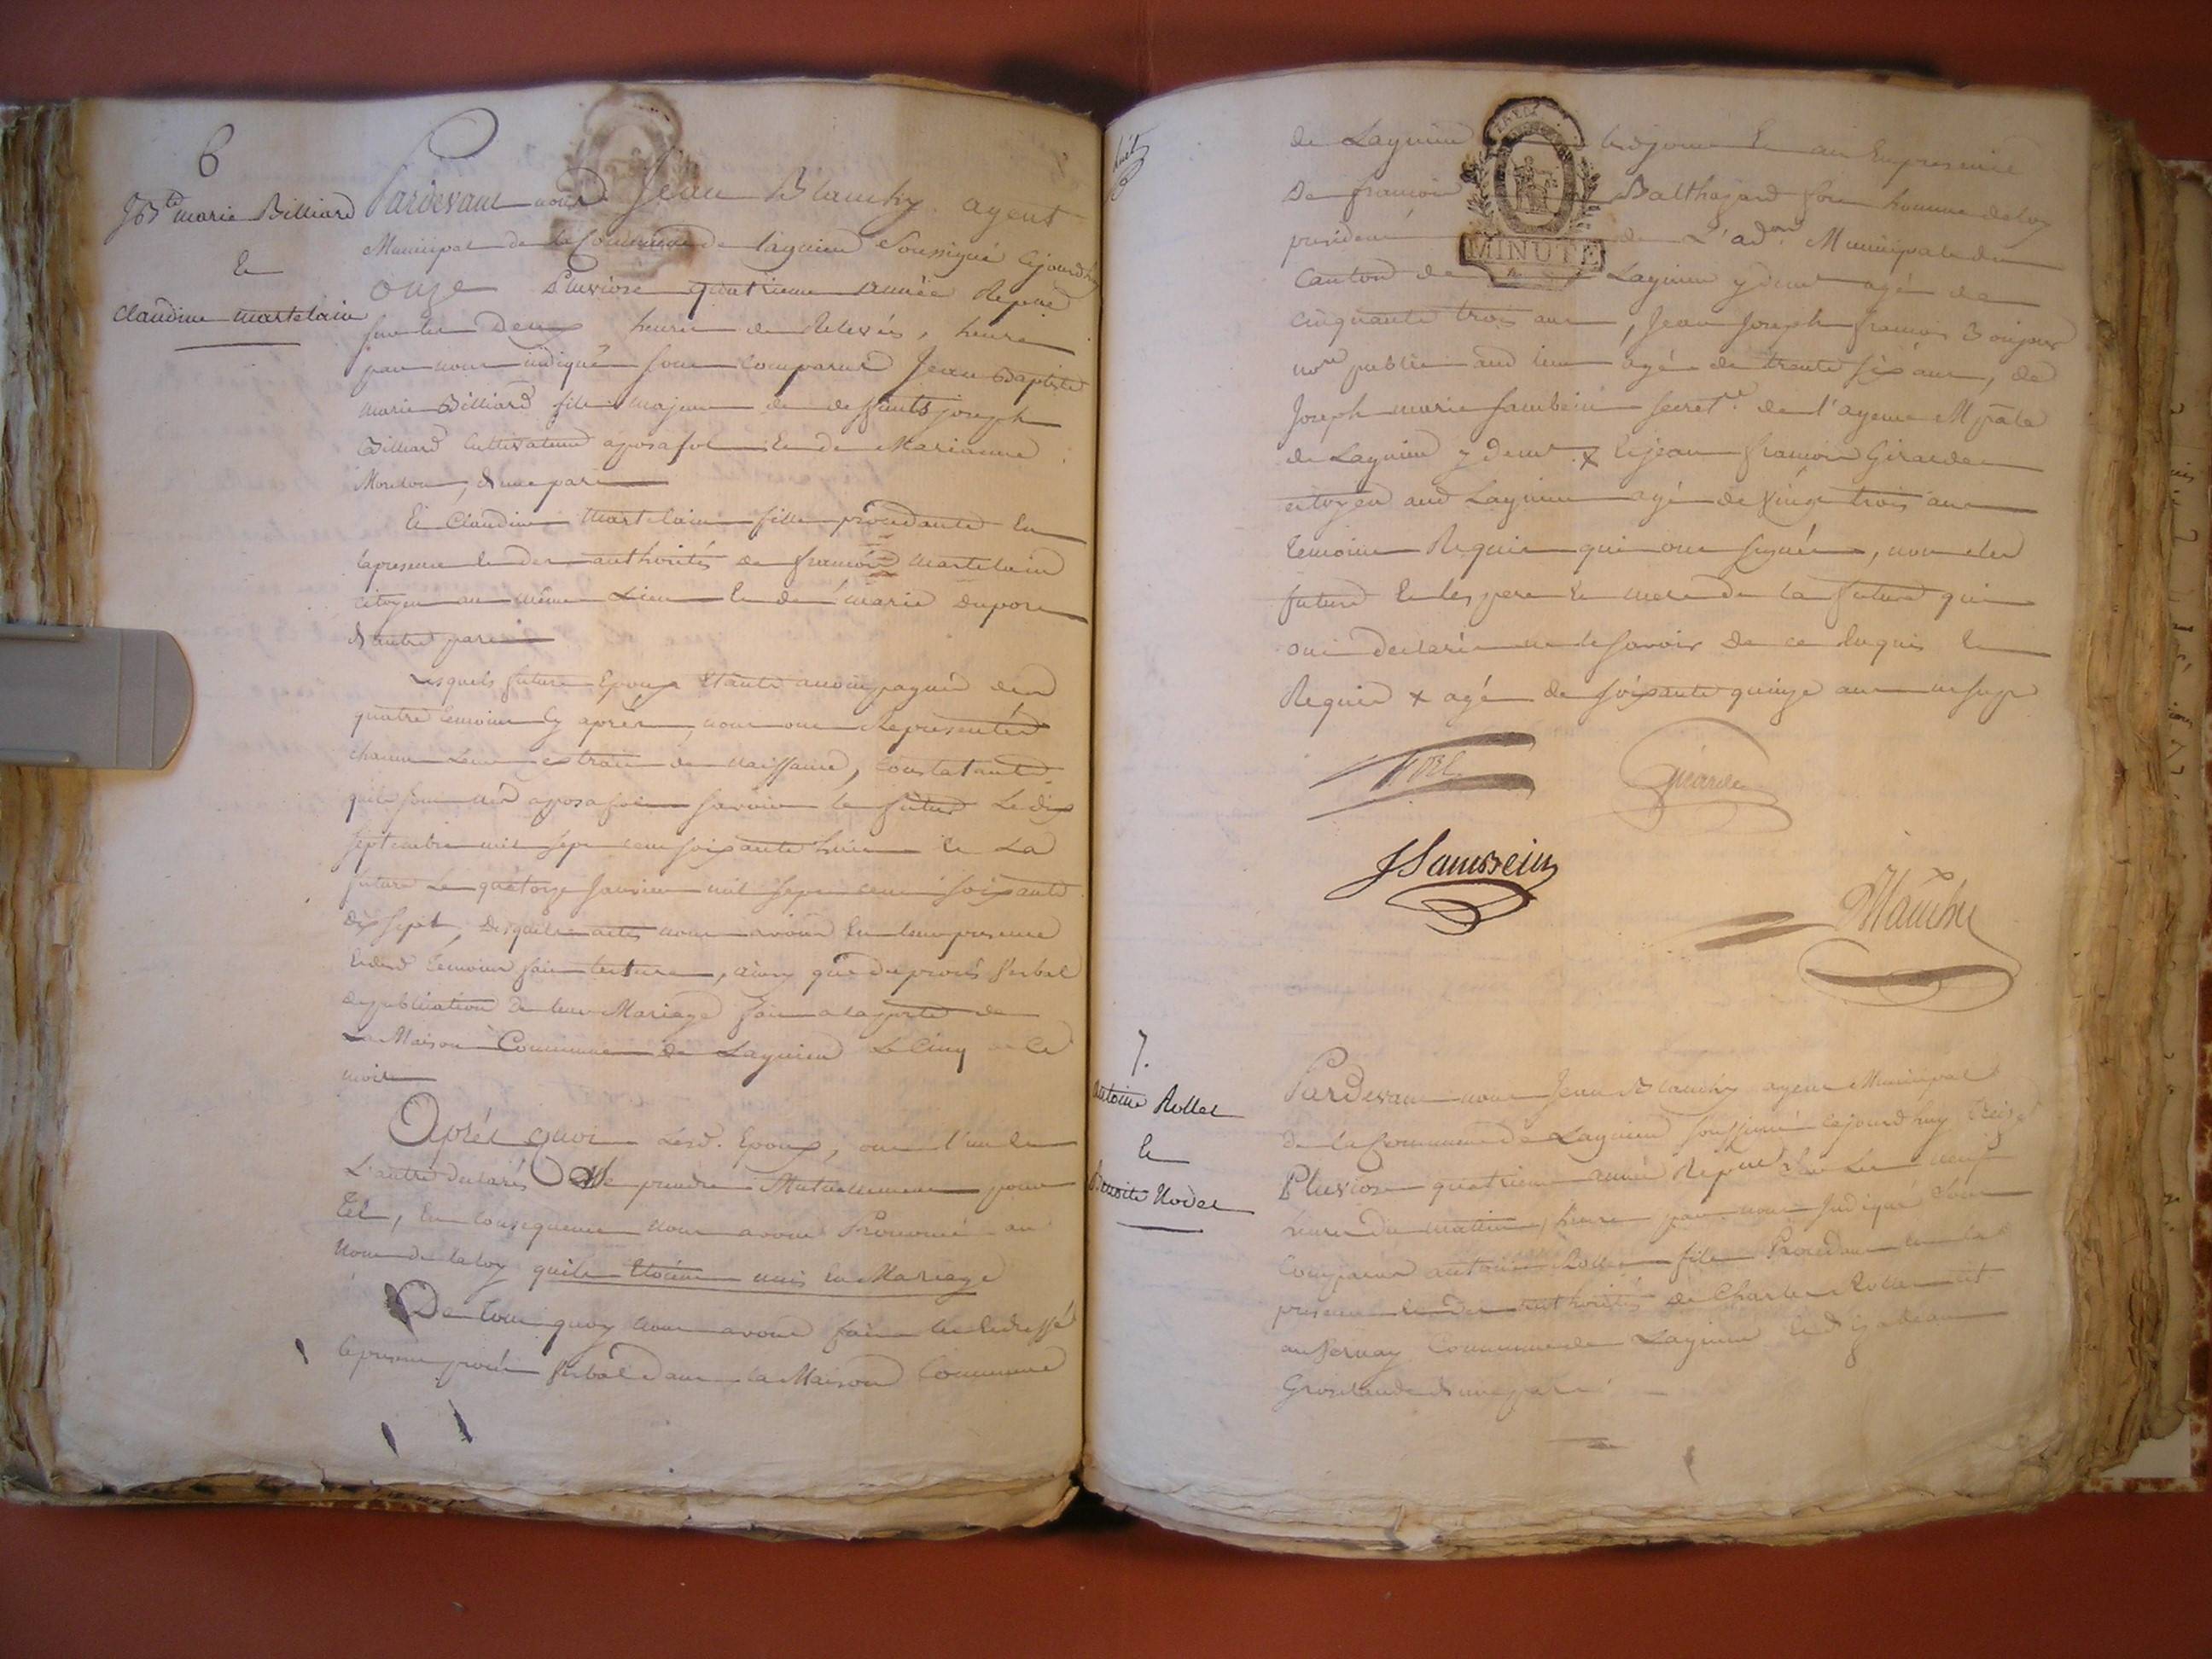 6
JB.te marie Billiard
et
Claudine martelain
Pardevant nous Jean Blanchy agent
Municipal de la Commune de lagnieu Soussigné cejourdhuy
onze Pluviose quatrieme année Repne
sur les Deux heures de Relevée, heure
par nous indiquée sont comparus Jean Baptiste
marie Billiard fils majeur de deffunts joseph
Billiard Cultivateur a posafol et de Marianne
d'une part
Et Claudine Martelain fille procedante en
la presence et des authorités de francois martelain
citoyen au même Lieu et de marie Dupont
d'autre part
Lesquels futurs Epoux Etants accompagnés des
quatre temoins cy après, nous ont Représentés
chacun Leur extrait de Naissance, Constatants
quils sont nés a posafol savoir le futur Le dix
septembre mil sept cent soixante huit et La
future Le quatorze Janvier mil sept cent soixante
dix sept, Desquels actes nous avons en leur presence
et desd temoins fait lecture, ainsy que du procès verbal
de publication de leur Mariage fait a la porte de
La Maison Commune de Lagnieu Le Cinq de Ce
mois
Après quoi Lesd. Epoux, ont l'un et
L'autre declarés Se prendre Mutuellement pour
Tel, en consequence nous avons Prononcé au
Nom de la loy quils Etoient unis en Mariage
De tout quoy nous avons fait et dressé
le present procès verbal dans la Maison Commune
de Lagnieu lesd jour et an En presence
De francois Balthazard homme de loy
president de L'ad.on Municipale du
Canton de Lagnieu y demt agé de
cinquante trois ans, Jean Joseph francois
nore public aud lieu agé de trente six ans, de
Joseph marie sec.re de l'agence Mpale
de Lagnieu y demt x et jean francois Girarde
citoyen aud Lagnieu agé de vingt trois ans
temoins Requis qui ont signés, non les
futurs et les pere et mere de la future qui
ont declaré ne le savoir de ce Enquis et
Requis x agé de soixante quinze ans
MINUTE
Girarde
Blanchy
7.
antoine Rollet
et
Benoite Nodet
Pardevant nous Jean Blanchy agent Municipal
de la Commune de Lagnieu soussigné cejourd'huy
Pluviose quatrieme année Repne sur les neuf
heures du matin, heure par nous Indiquée sont
Comparus antoine Rollet fils Procedant en la
presence et des authorités de Charles Rollet cit
Commune de Lagnieu
d'une part